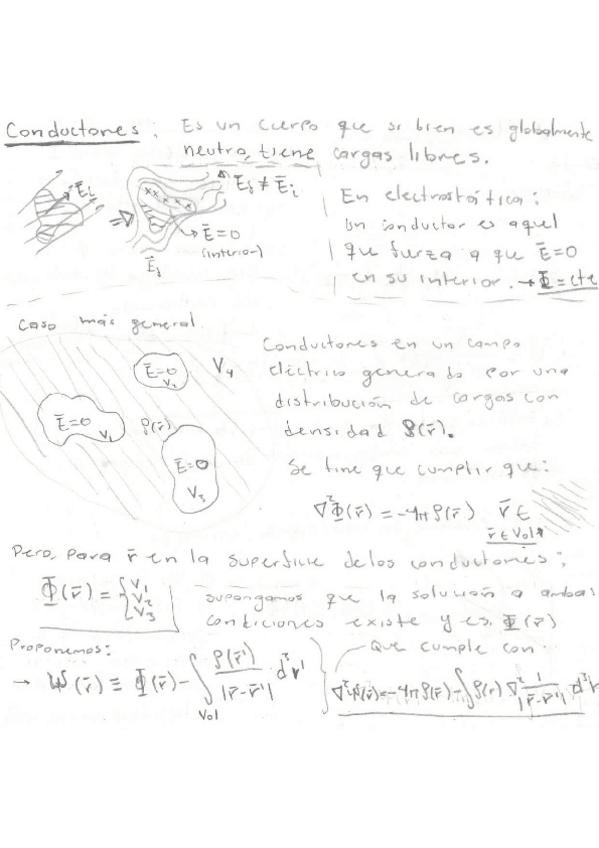 Conductores: Es un cuerpo que si bien es globalmente
neutro, tiene cargas libres.
Ēᵢ
Ē_f ≠ Ēᵢ
Ē=0
(interior)
Ē_f
En electrostática:
Un conductor es aquel
que fuerza a que Ē=0
en su interior. → Φ=cte
Caso más general
Ē=0
V₂
V₄
Ē=0
V₁
ρ(r̄)
Ē=0
V₃
Conductores en un campo
eléctrico generado por una
distribución de cargas con
densidad ρ(r̄).
Se tine que cumplir que:
∇²Φ(r̄) = -4π ρ(r̄) r̄ ∈
r̄ ∈ Vol 4
Pero, para r̄ en la superficie de los conductores;
Φ(r̄) = { V₁
V₂
V₃
supongamos que la solución a ambas
condiciones existe y es Φ(r̄)
Proponemos:
Que cumple con
→ W(r̄) ≡ Φ(r̄) - ∫ ρ(r̄') / |r̄-r̄'| d³r'
Vol
∇²W(r̄) = -4π ρ(r̄) - ∫ ρ(r) ∇² 1 / |r̄-r̄'| d³r